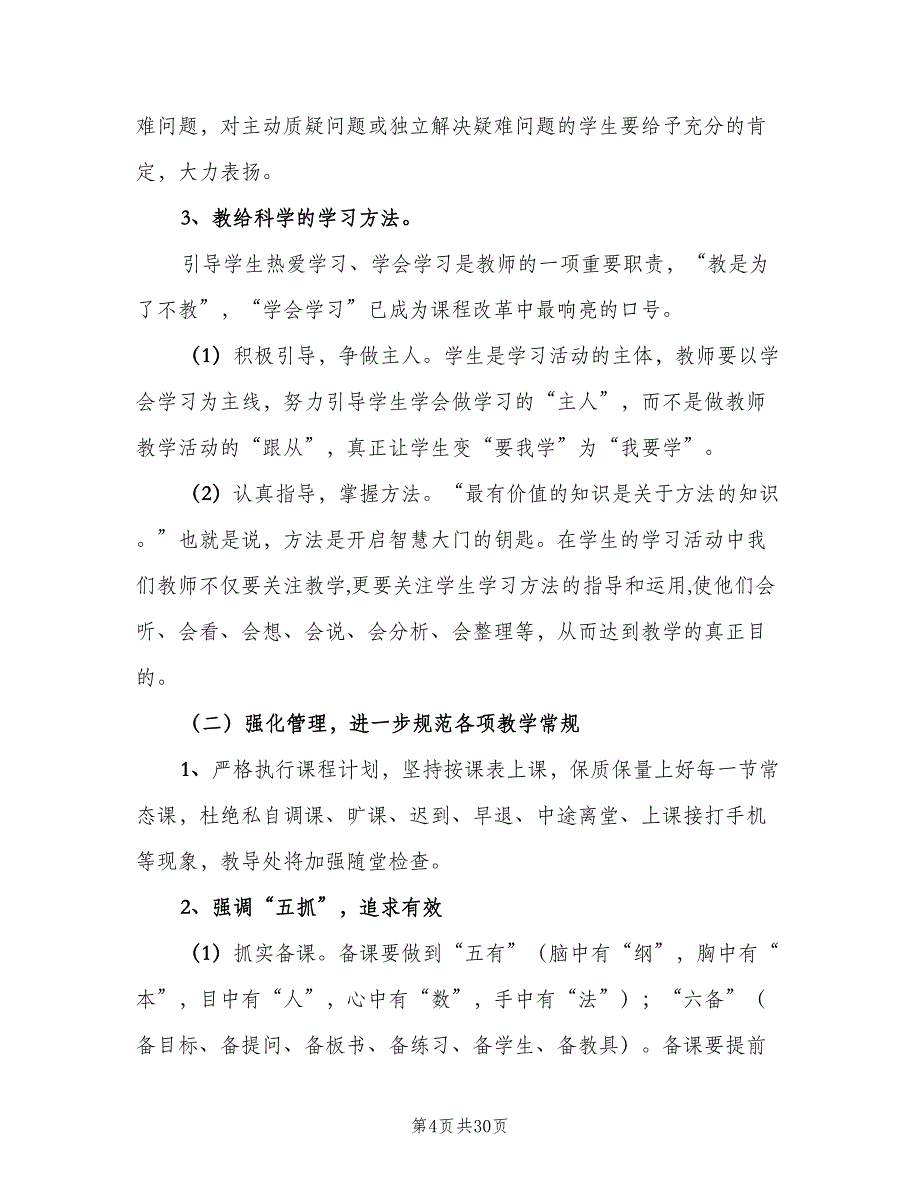 难问题，对主动质疑问题或独立解决疑难问题的学生要给予充分的肯
定，大力表扬。
3、教给科学的学习方法。
引导学生热爱学习、学会学习是教师的一项重要职责，“教是为
了不教”，“学会学习”已成为课程改革中最响亮的口号。
（1）积极引导，争做主人。学生是学习活动的主体，教师要以学
会学习为主线，努力引导学生学会做学习的“主人”，而不是做教师
教学活动的“跟从”，真正让学生变“要我学”为“我要学”。
（2）认真指导，掌握方法。“最有价值的知识是关于方法的知识
。”也就是说，方法是开启智慧大门的钥匙。在学生的学习活动中我
们教师不仅要关注教学,更要关注学生学习方法的指导和运用,使他们会
听、会看、会想、会说、会分析、会整理等，从而达到教学的真正目
的。
（二）强化管理，进一步规范各项教学常规
1、严格执行课程计划，坚持按课表上课，保质保量上好每一节常
态课，杜绝私自调课、旷课、迟到、早退、中途离堂、上课接打手机
等现象，教导处将加强随堂检查。
2、强调“五抓”，追求有效
（1）抓实备课。备课要做到“五有”（脑中有“纲”，胸中有“
本”，目中有“人”，心中有“数”，手中有“法”）；“六备”（
备目标、备提问、备板书、备练习、备学生、备教具）。备课要提前
第4页共30页